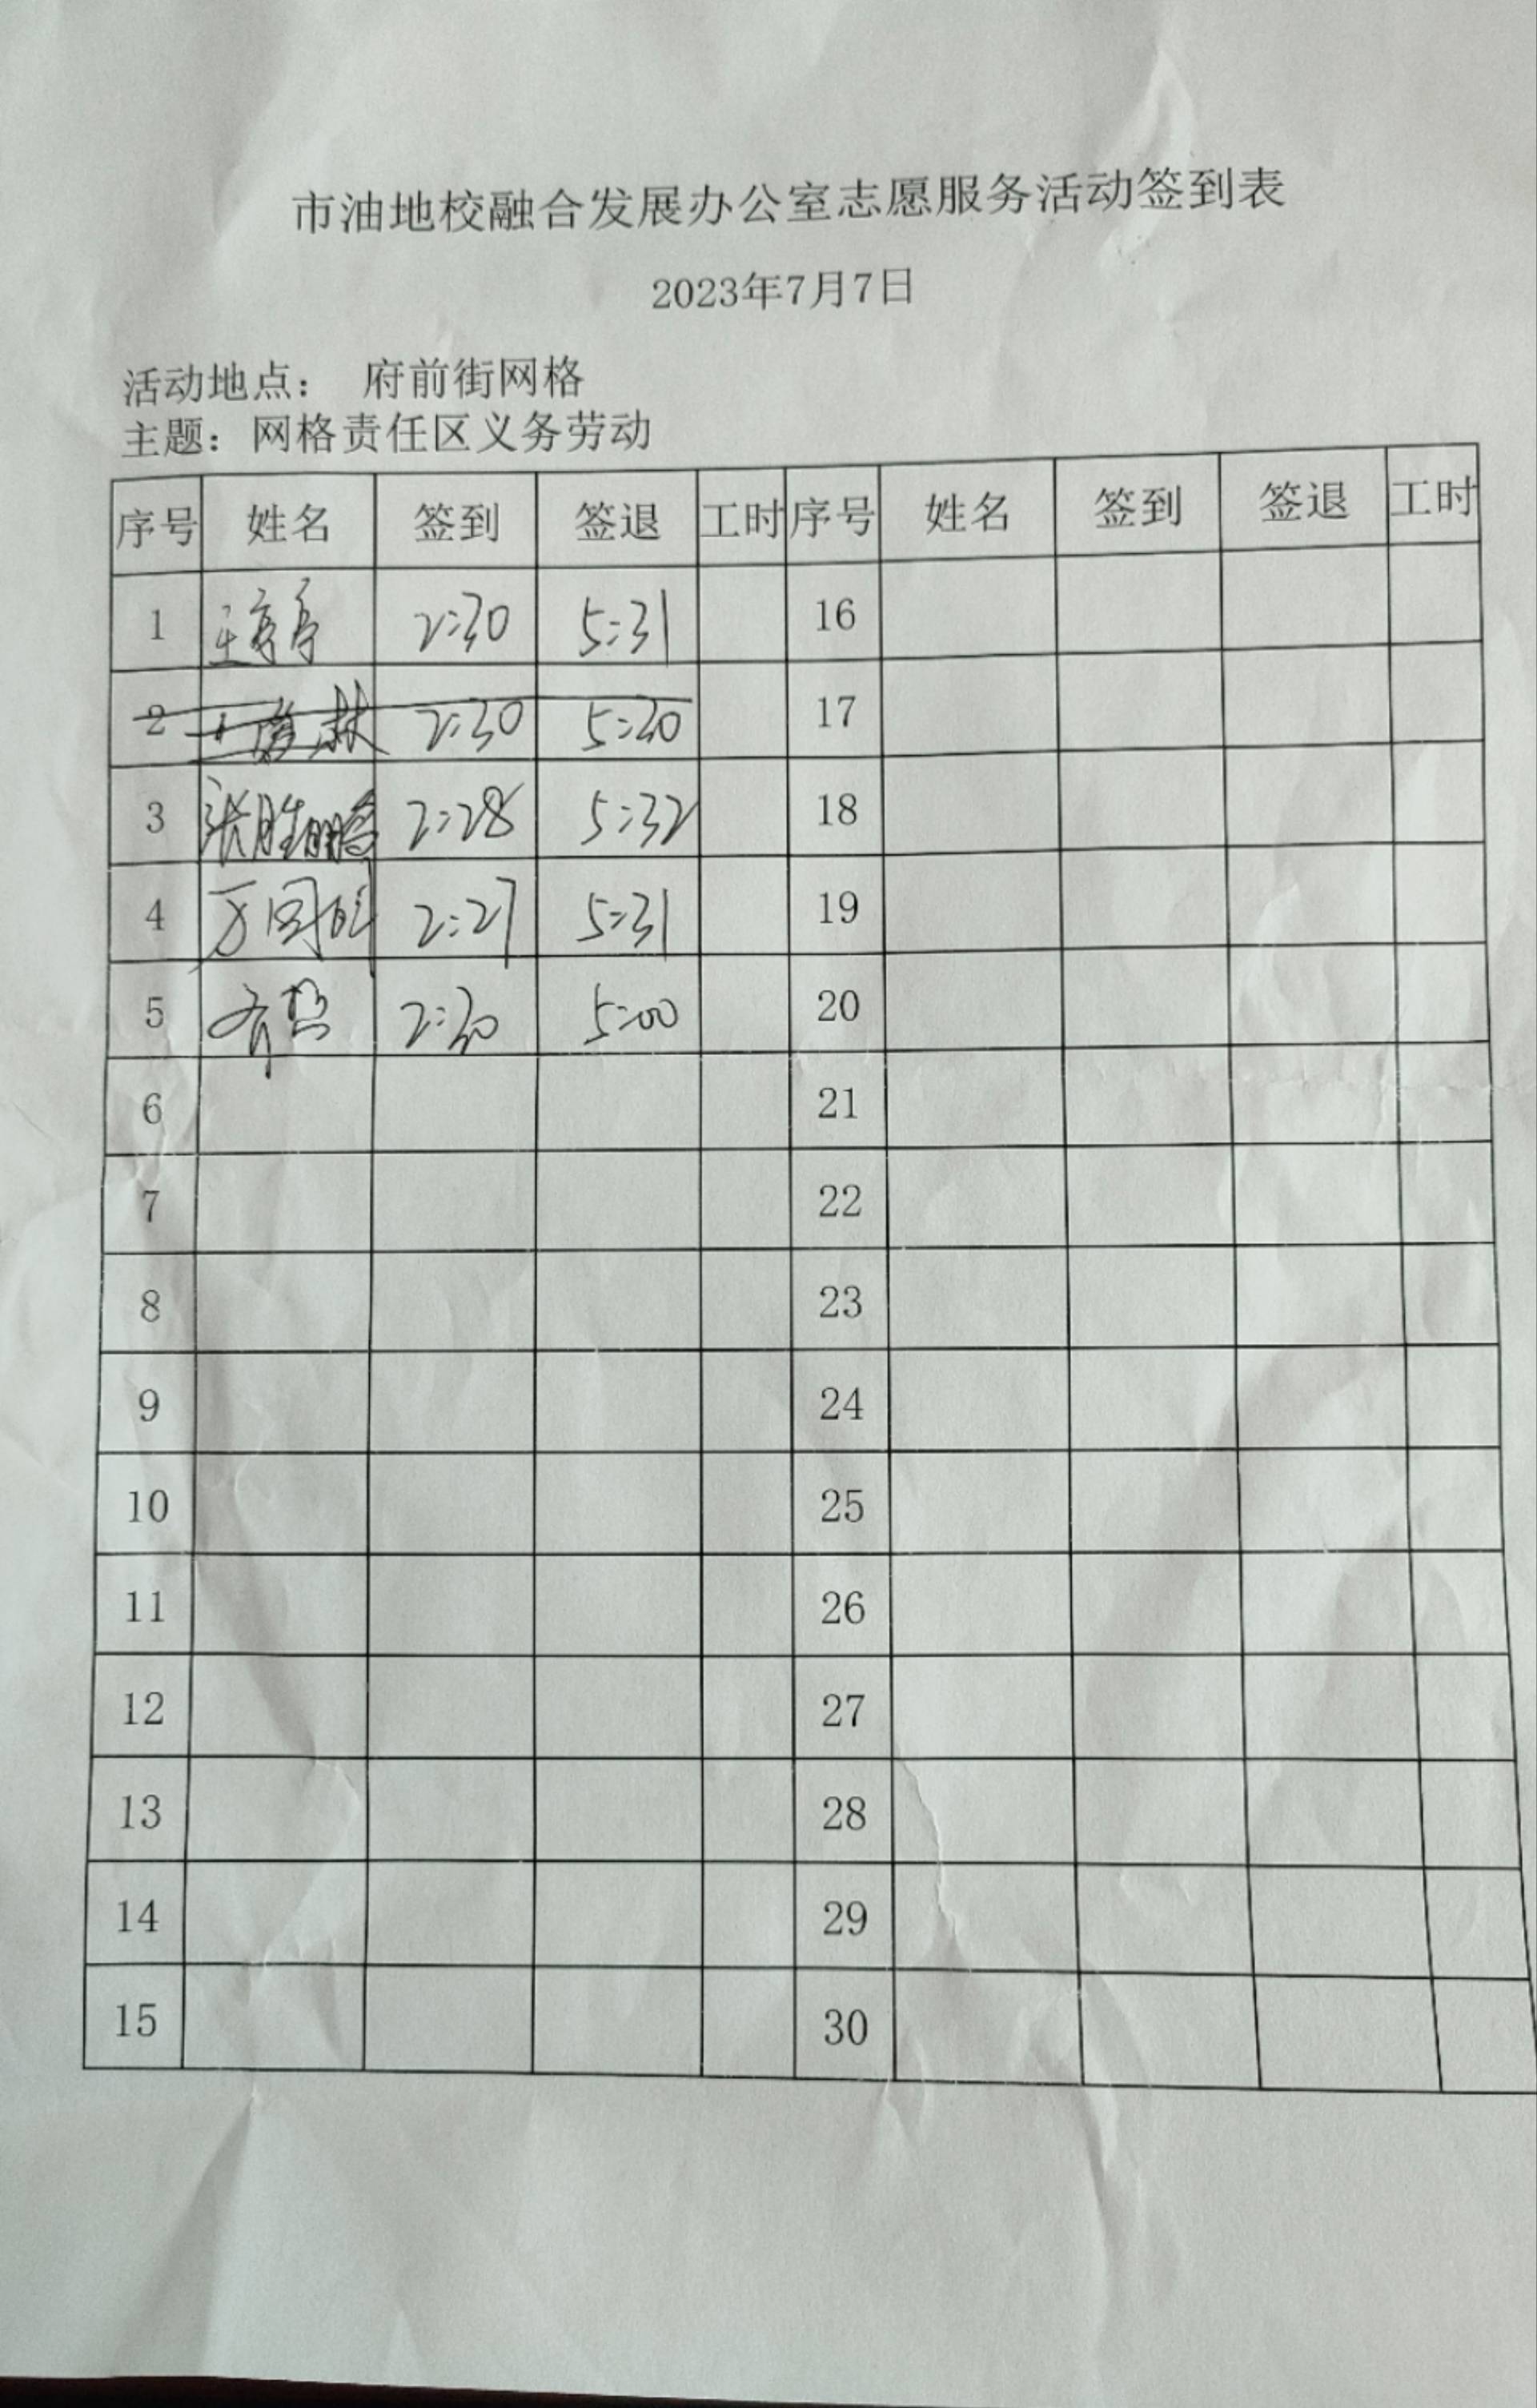 市油地校融合发展办公室志愿服务活动签到表
2023年7月7日
活动地点： 府前街网格
主题：网格责任区义务劳动
序号 姓名 签到 签退 工时 序号 姓名 签到 签退 工时
1 王亭亭 2:30 5:31 16
2 2:30 5:30 17
3 张胜鹏 2:28 5:32 18
4 2:27 5:31 19
5 2:30 5:00 20
6 21
7 22
8 23
9 24
10 25
11 26
12 27
13 28
14 29
15 30